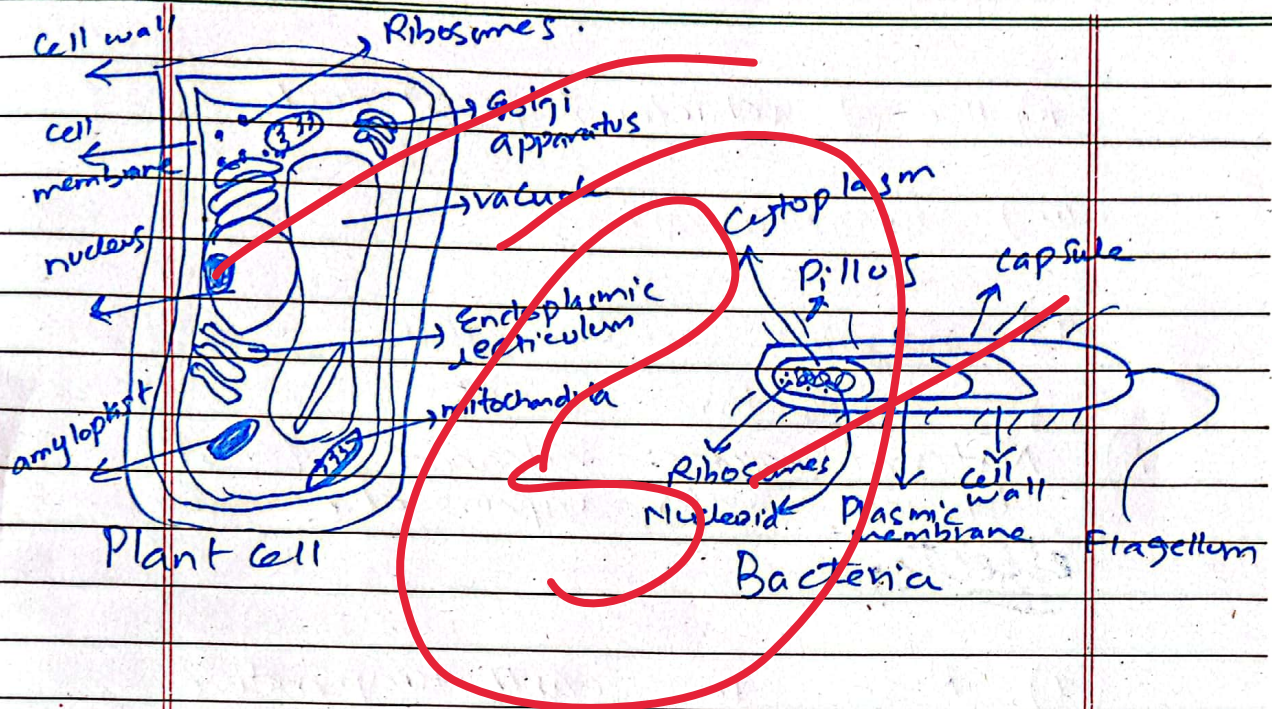 Cell wall
Ribosomes.
Golgi
apparatus
cell
membrane
vacuole
nucleus
Endoplasmic
recticulum
amyloplast
mitochondria
Plant cell
Cytoplasm
Pillus
capsule
Ribosomes
Nucleoid
Plasmic
membrane
cell
wall
Flagellum
Bacteria
3